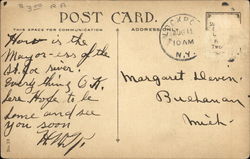 $3.00 RA
POST CARD.
THIS SPACE FOR COMMUNICATION
ADDRESS ONLY
10 AM
N.Y.
How is the
Mayor-ess of the
St. Joe river.
Everything O.K.
here Hope to be
home and see
you soon
Margaret Deven,
Buchanan
Mich.